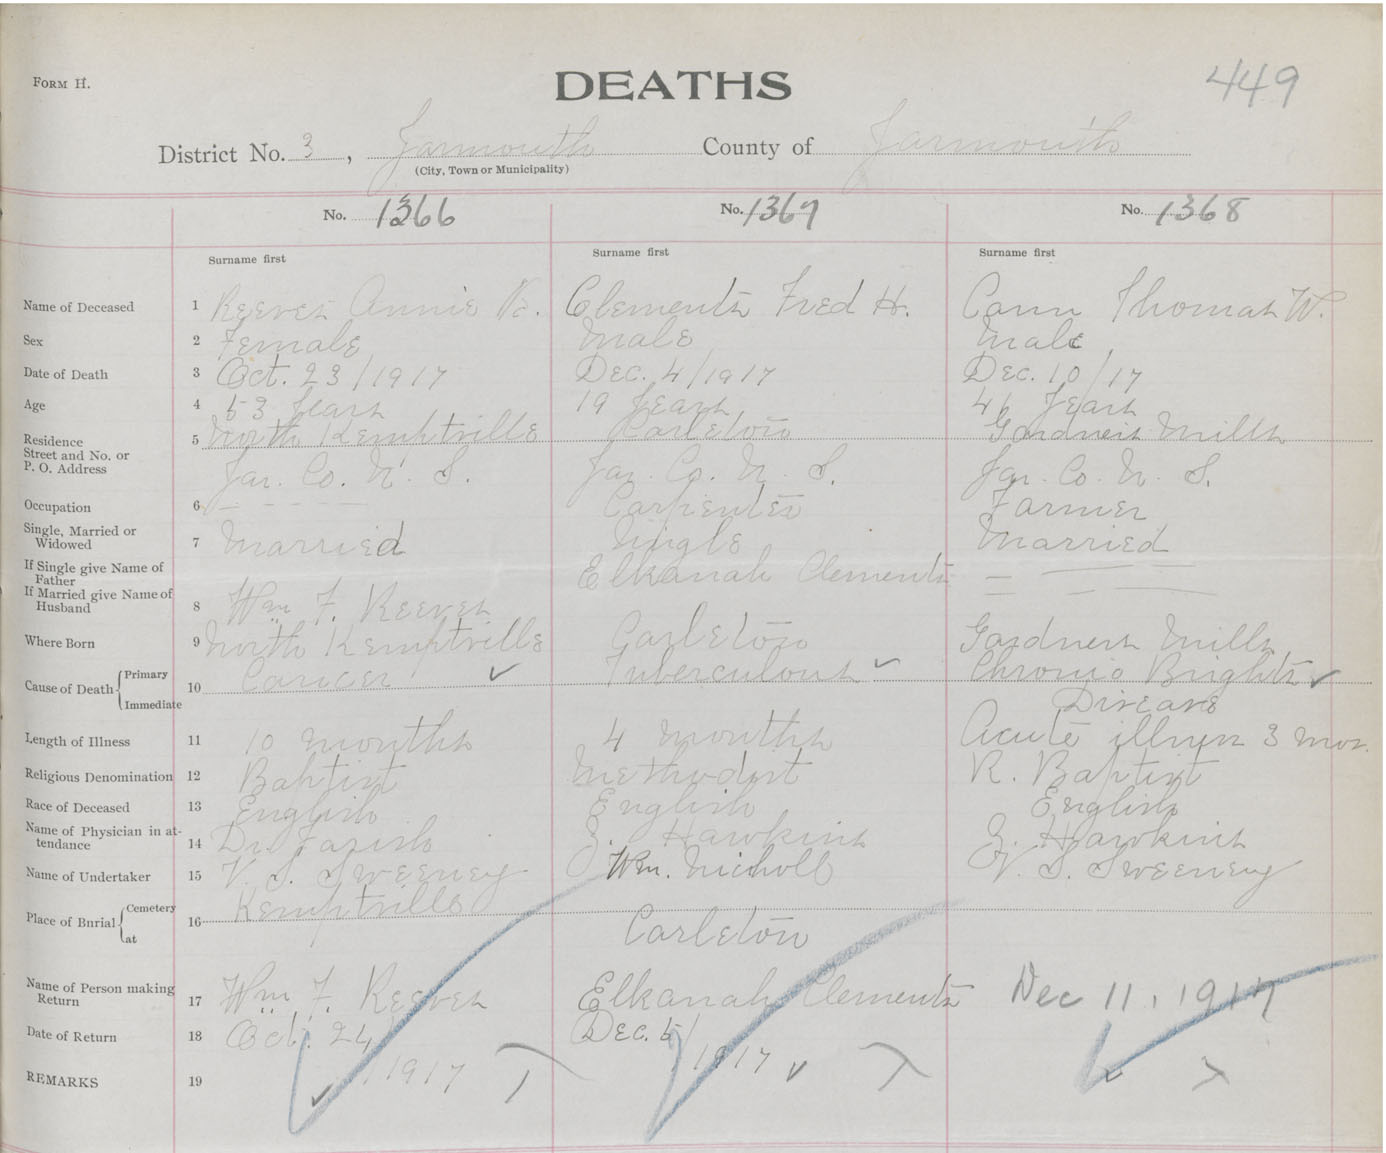 FORM H.
DEATHS
449
District No. 3, Yarmouth County of Yarmouth
(City, Town or Municipality)
No. 1366 No. 1367 No. 1368
Surname first Surname first Surname first
Name of Deceased 1 Reeves Annie Clements Fred H. Cann Thomas W.
Sex 2 Female Male Male
Date of Death 3 Oct. 23/1917 Dec. 4/1917 Dec. 10/17
Age 4 53 Years 19 Years 46 Years
Residence 5 North Kemptville Carleton Gardners Mills
Street and No. or
P. O. Address Yar. Co. N. S. Yar. Co. N. S. Yar. Co. N. S.
Occupation 6 - - - - Carpenter Farmer
Single, Married or
Widowed 7 Married Single Married
If Single give Name of
Father Elkanah Clements — —
If Married give Name of
Husband 8 Wm. F. Reeves — — —
Where Born 9 North Kemptville Carleton Gardners Mills
Cause of Death { Primary
Immediate 10 Cancer ✓ Tuberculous ✓ Chronic Brights ✓
Disease
Length of Illness 11 10 months 4 months Acute illness 3 mos.
Religious Denomination 12 Baptist Methodist R. Baptist
Race of Deceased 13 English English English
Name of Physician in at-
tendance 14 Dr. Farish Z. Hawkins Z. Hawkins
Name of Undertaker 15 V. S. Sweeney Wm. Nicholl V. S. Sweeney
Place of Burial { Cemetery
at 16 Kemptville Carleton
Name of Person making
Return 17 Wm. F. Reeves Elkanah Clements Dec 11, 1917
Date of Return 18 Oct. 24/ Dec. 5/
1917 1917
REMARKS 19